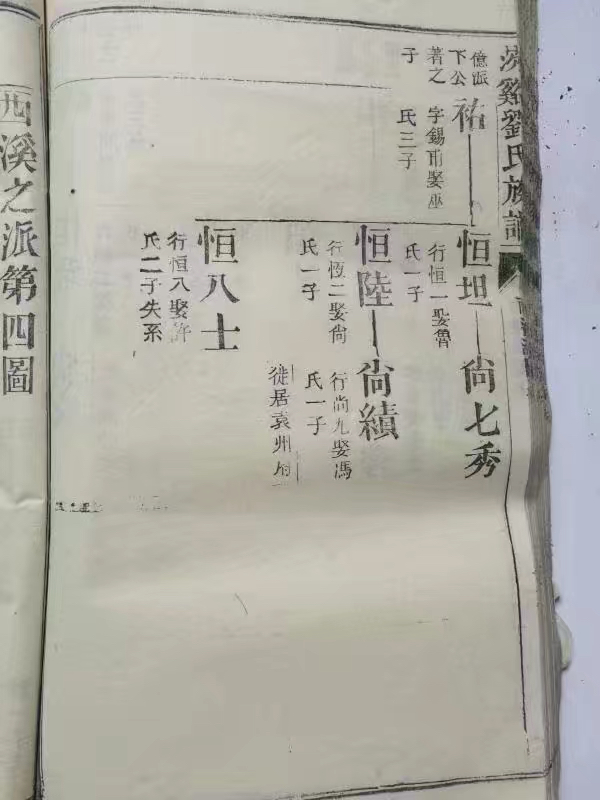 劉氏族譜
億派
下公
著之
子
祐
字錫甫娶巫
氏三子
恒坦
行恒一娶魯
氏一子
尙七秀
恒陸
行恆二娶尙
氏一子
尙績
行尙九娶馮
氏一子
徙居袁州府
恒八士
行恒八娶許
氏二子失系
西溪之派第四圖